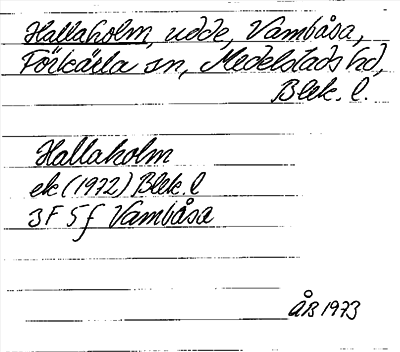 Hallaholm, udde, Vambåsa,
Förkärla sn, Medelstads hd,
Blek. l.
Hallaholm
ek (1972) Blek. l
3 F 5 f Vambåsa
ÅB 1973